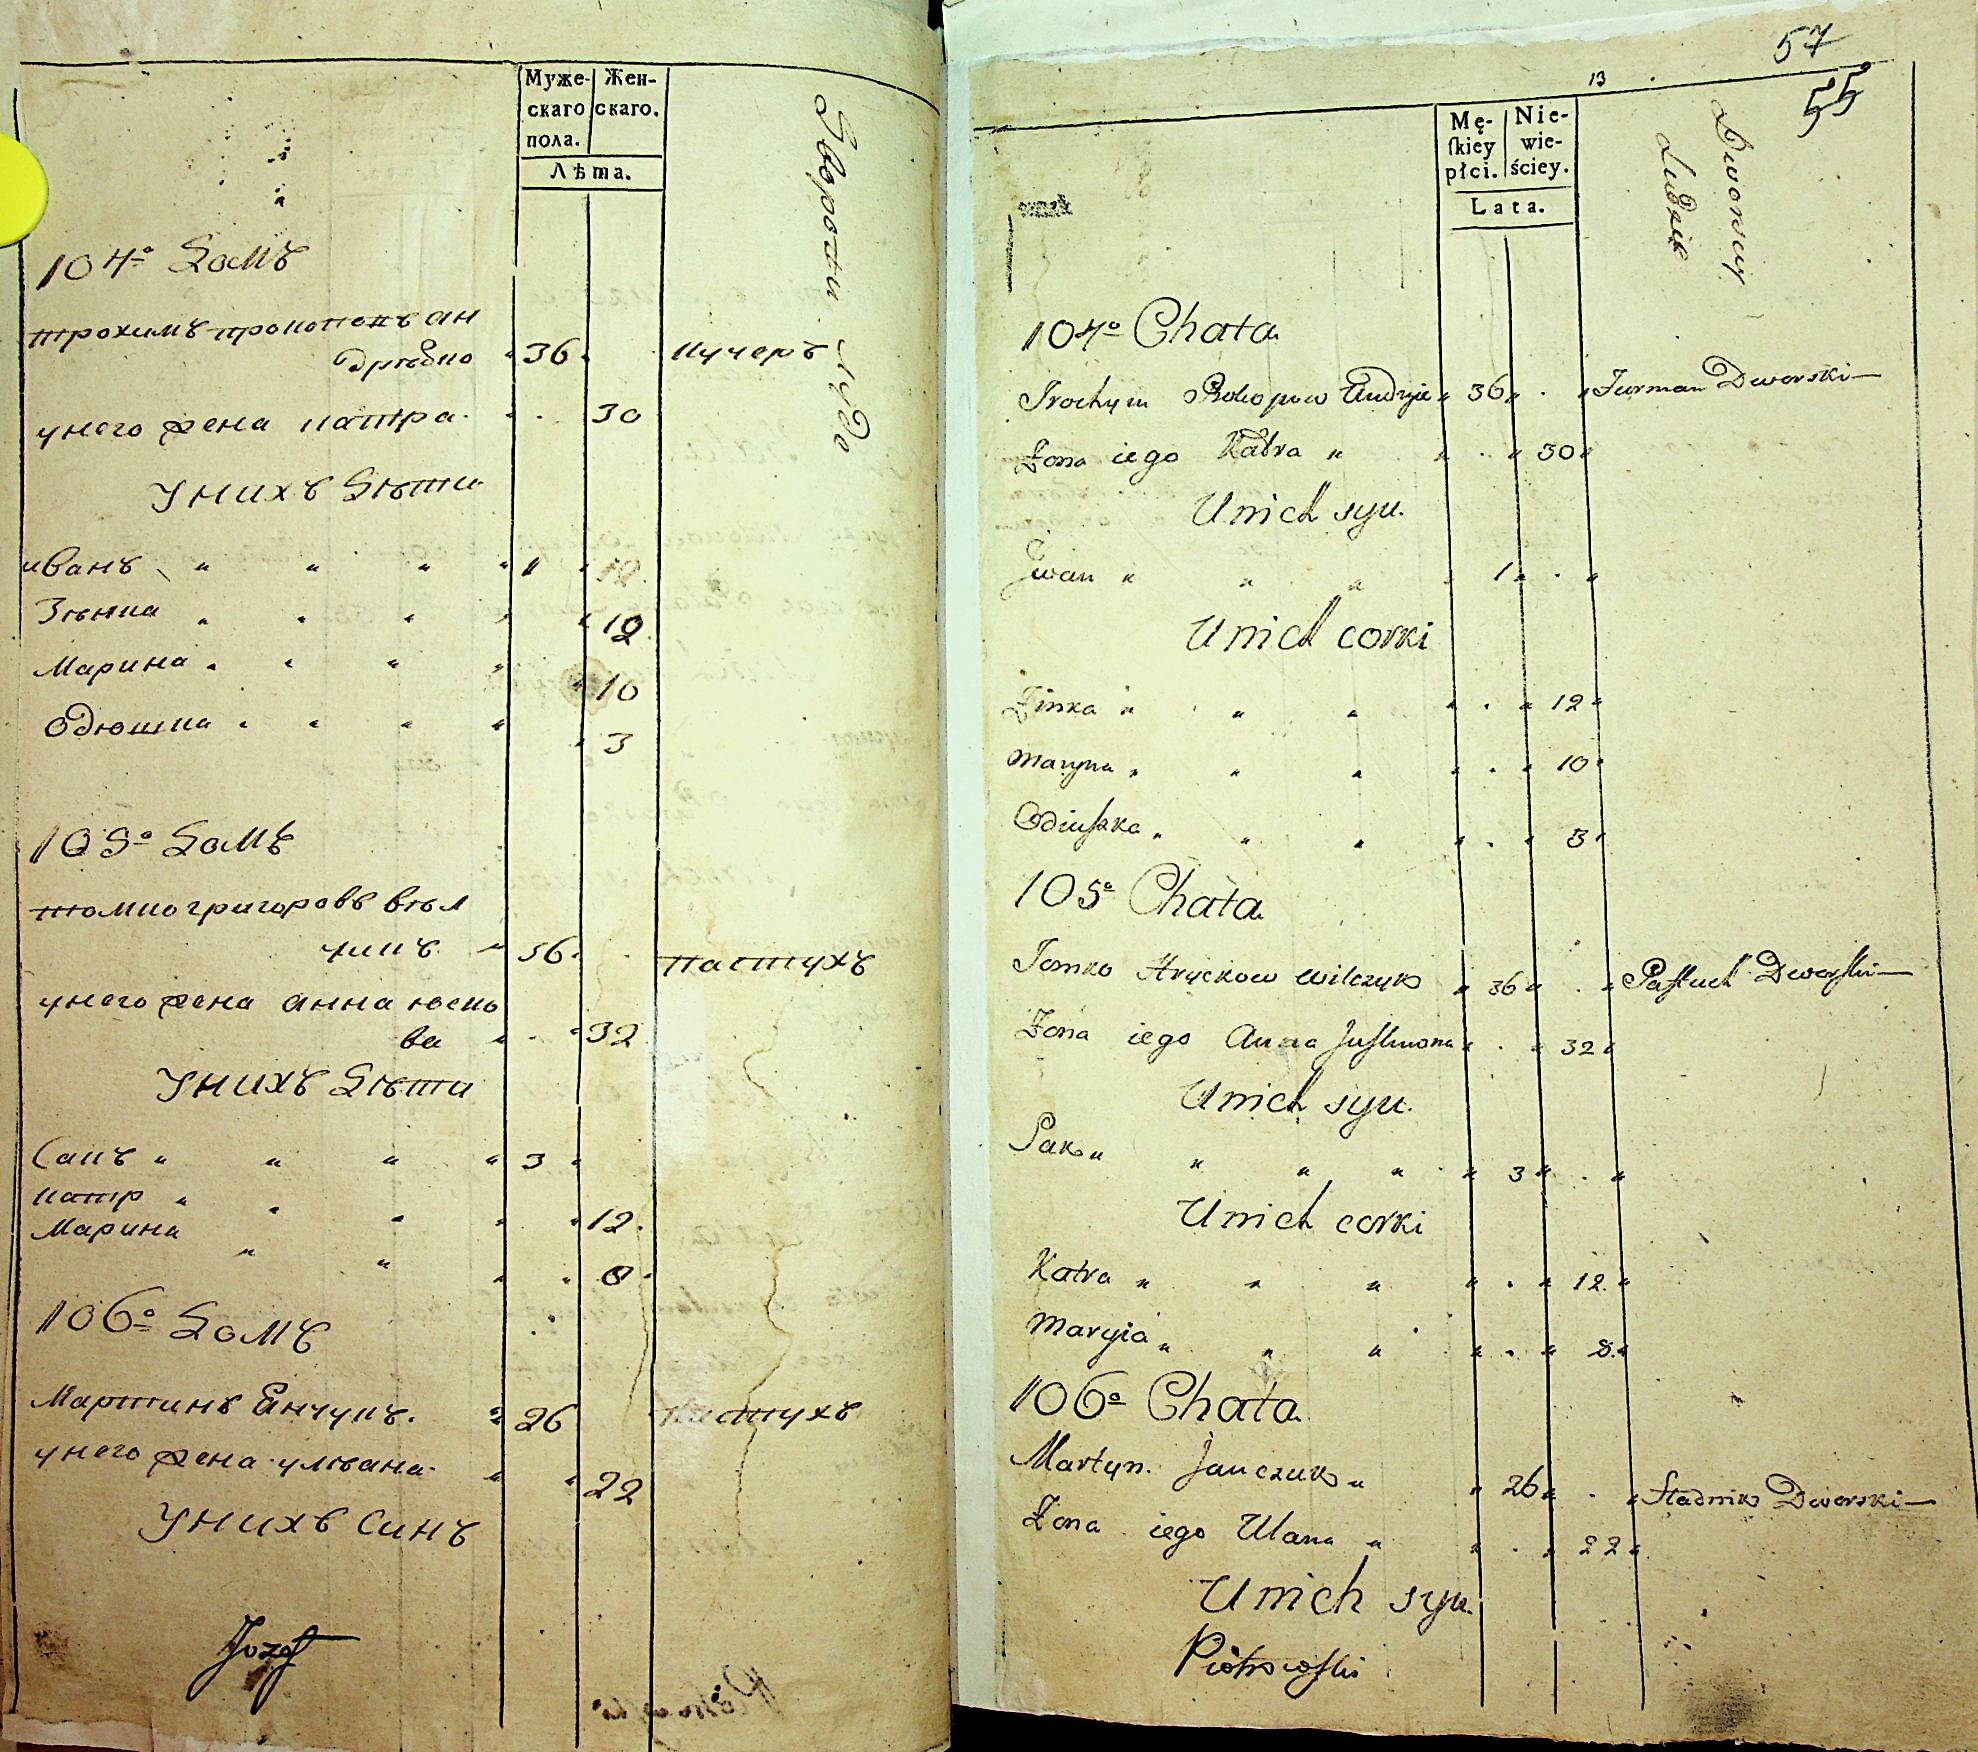 Муже-
скаго
пола.
Жен-
скаго.
Лѣта.
Дворски люде
104º Домъ
трохимъ прокопокъ ан
дрѣвно 36 кучеръ
унего жена катра 30
Унихъ Дѣти
иванъ 1
Зѣнка 12
Марина 10
Одюшка 3
105º Домъ
томко григоровъ вѣл
чикъ 36 пастухъ
унего жена анна юско
ва 32
Унихъ Дѣти
Сакъ 3
катр 12
Марина 8
106º Домъ
Мартинъ Янчукъ 26 пастухъ
унего жена уляана 22
Унихъ Синъ
Jozef
57
13
55
Mę-
ſkiey
płci.
Nie-
wie-
ściey.
Lata.
Dworscy
Ludzie
104º Chata
Trochym Prokopow Andryie 36 Furman Dworski
Żona iego Katra 30
Unich syn.
Jwan 1
Unich corki
Zinka 12
Maryna 10
Odiuſzka 3
105º Chata
Tomko Hryckow Wilczyk 36 Paſtuch Dworſki
Żona iego Anna Juſkowa 32
Unich syn.
Sak 3
Unich corki
Katra 12
Maryia 8
106º Chata
Martyn Janczuk 26 Stadnik Dworski
Żona iego Ulana 22
Unich syn.
Piotrowſki